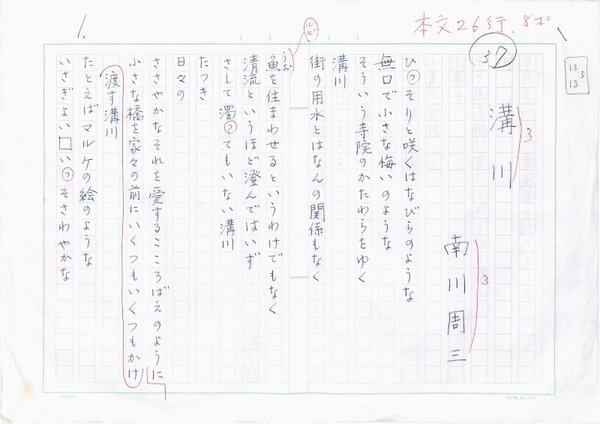 1.
本文26行、8ポ
37
13
5
13
溝川
3
南川周三
3
ひっそりと咲くはなびらのような
無口で小さな悔いのような
そういう寺院のかたわらをゆく
溝川
街の用水とはなんの関係もなく
ルビ
うお
魚を住まわせるというわけでもなく
清流というほど澄んではいず
さして濁ってもいない溝川
たつき
日々の
ささやかなそれを愛するこころばえのように
小さな橋を家々の前にいくつもいくつもかけ
渡す溝川
たとえばマルケの絵のような
いさぎよい□いっそさわやかな